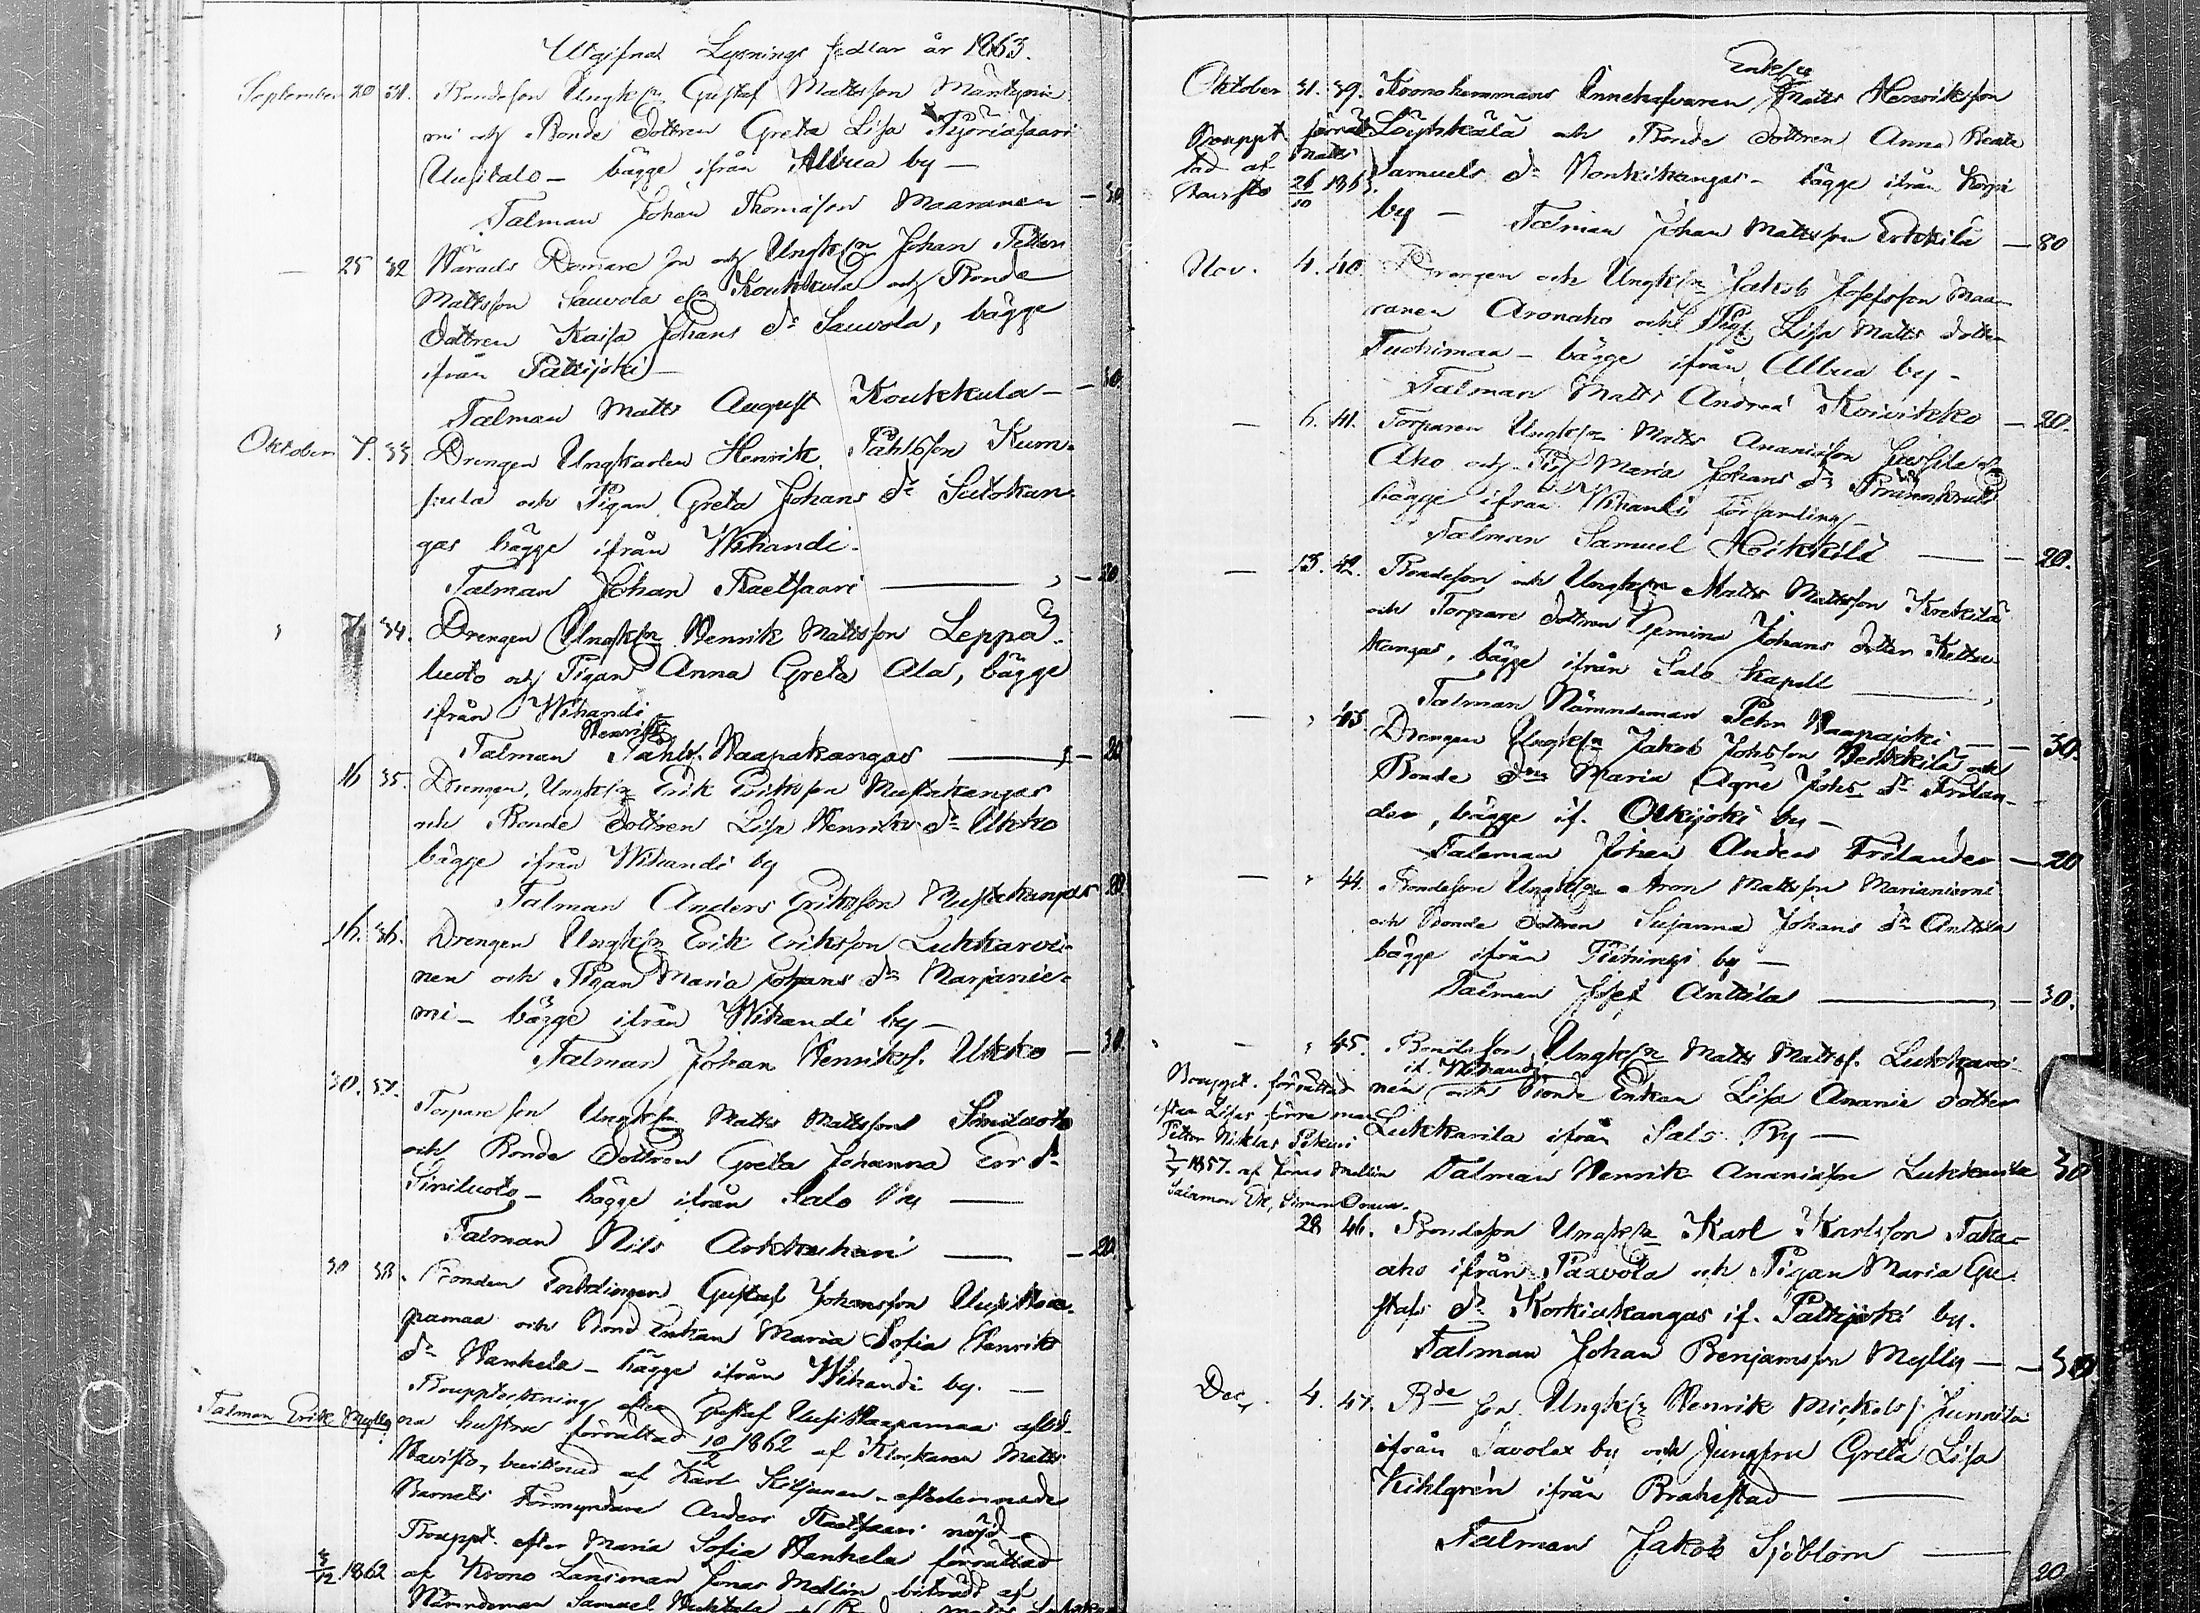 Utgifna Lysnings sedlar år 1863.
September 20 31. Bondeson Ungk:n Gustaf Mattsson Mäntynie
mi och Bonde dottren Greta Lisa
Uusitalo - bägge ifrån Alpua by -
Talman Johan Thomasson Maaranen - 30
- 25 32 Härads Domare son och Ungk:n Johan Petter
Mattsson Sauvola eller Koukkula och Bonde
dottren Kaisa Johans d:r Sauvola, bägge
ifrån Pattijoki -
Talman Matts August Koukkula - - 30.
Oktober 7. 33 Drengen Ungkarlen Henrik Påhlsson Kum-
pula och Pigan Greta Johans d:r Salokan-
gas bägge ifrån Wihandi.
Talman Johan Raetsaari - 20
7 34. Drengen Ungk:n Henrik Mattsson Leppä-
luoto och Pigan Anna Greta Ala, bägge
ifrån Wihandi
Henrik
Talman Påhls. Haapakangas - 20
16 35. Drengen, Ungk:n Erik Eriksson Mustakangas
och Bonde dottren Lisa Henriks d:r Ukko
bägge ifrån Wihandi by
Talman Anders Eriksson Mustakangas 20
16. 36. Drengen Ungk:n Erik Eriksson Lukkaroi-
nen och Pigan Maria Johans d:r Marjanie-
mi - bägge ifrån Wihandi by -
Talman Johan Henriks. Ukko - 30.
30. 37. Torpare son Ungk:n Matts Mattsson Siniluoto
och Bonde Dottren Greta Johanna Er d:r
Siniluoto - bägge ifrån Salo by
Talman Nils Arkkukari - 20.
30 38. Bonden Enklingen Gustaf Johansson Uusihaa-
pamaa och Bond Enkan Maria Sofia Henriks
d:r Wanhela - bägge ifrån Wihandi by. -
Bouppteckning efter Gustaf Uusihaapamaas aflid-
Talman Erik Mylly
na hustru förrättad 10/2 1862 af Klockaren Matts
Navisto, bivittnad af Karl Kiljanen - efterlemnade
Barnets Förmyndare Anders Raetsaari nöjd -
Bouppt. efter Maria Sofia Wanhela förrättad
3/12 1862 af Krono Länsman Jonas Mellin biträdd af
Nämndeman Samuel
Enkl:n
Oktober 31. 39. Kronohemmans Innehafvaren Matts Henriksson
Bouppt förrät- Löytykälä och Bonde dottren Anna Beata
tad af Matts Samuels d:r Honkikangas - bägge ifrån Korpi
Navisto 26/10 1863. by - Talman Johan Mattsson Erkkilä - 30
Nov. 4. 40. Drengen och Ungk:n Jakob Josefsson Maa-
ranen Aronaho och Pig. Lisa Matts dotter
Tuohimaa - bägge ifrån Alpua by -
Talman Matts Andreä Koivikko - 20.
- 6. 41. Torparen Ungk:n Matts Ananiasson Jussila eller
Aho och Pig Maria Johans d:r
bägge ifrån Wihandi församling -
Talman Samuel Heikkilä - 20.
- 13. 42. Bondeson och Ungk:n Matts Mattsson Krekilä
och Torpare dottren Gemina Johans dotter Kettu-
kangas, bägge ifrån Salo Kapell
Talman Nämndeman Pehr Haapajoki - - 30.
- 43. Drengen Ungk:n Jakob Johsson Heikkilä och
Bonde d:n Maria Agre Johs d:r Frilan-
der, bägge if. Olkijoki by -
Talaman Johan Anders Frilander - 20
- 44. Bondeson Ungk:n Aron Mattsson Marianiemi
och Bonde dottren Susanna Johans d:r Anttila
bägge ifrån Piehingi by -
Talman Josef Anttila - 30.
- 45. Bondeson Ungk:n Matts Mattss. Lukkaroi-
if. Wihandi
Bouppt. förrättad nen och Bonde Enkan Lisa Anania dotter
efter Lisas förra man Lukkarila ifrån Salo By -
Petter Niklas Pekuri
1857. af Jonas Mellin Talman Henrik Ananiasson Lukkarila 30
Salamon Erk, Simon
28 46. Bondeson Ungk:n Karl Karlsson Taka-
aho ifrån Paavola och Pigan Maria Gu-
stafs d:r Korkiakangas if. Pattijoki by.
Talman Johan Benjamsson Mylly - - 30
Dec. 4. 47. B:de son Ungk:n Henrik Mickels s. Junnila
ifrån Savolax by och Jungfru Greta Lisa
Kihlgrén ifrån Brahestad -
Talman Jakob Sjöblom -
20